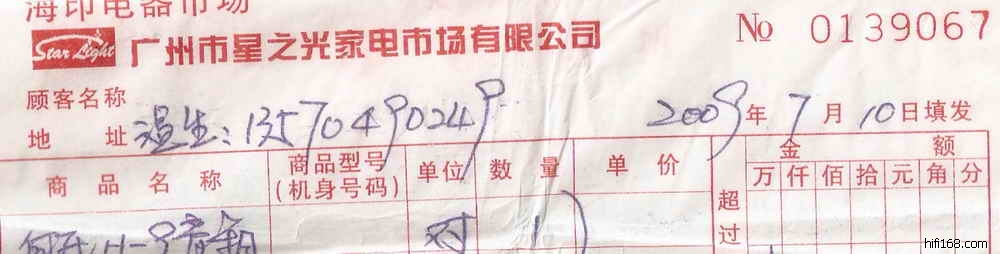 海印电器市场
Star Light 广州市星之光家电市场有限公司 № 0139067
顾客名称
地址 温生:13570490249 2009年7月10日填发
商品名称 商品型号(机身号码) 单位 数量 单价 超过 金额
万 仟 佰 拾 元 角 分
对 1
hifi168.com